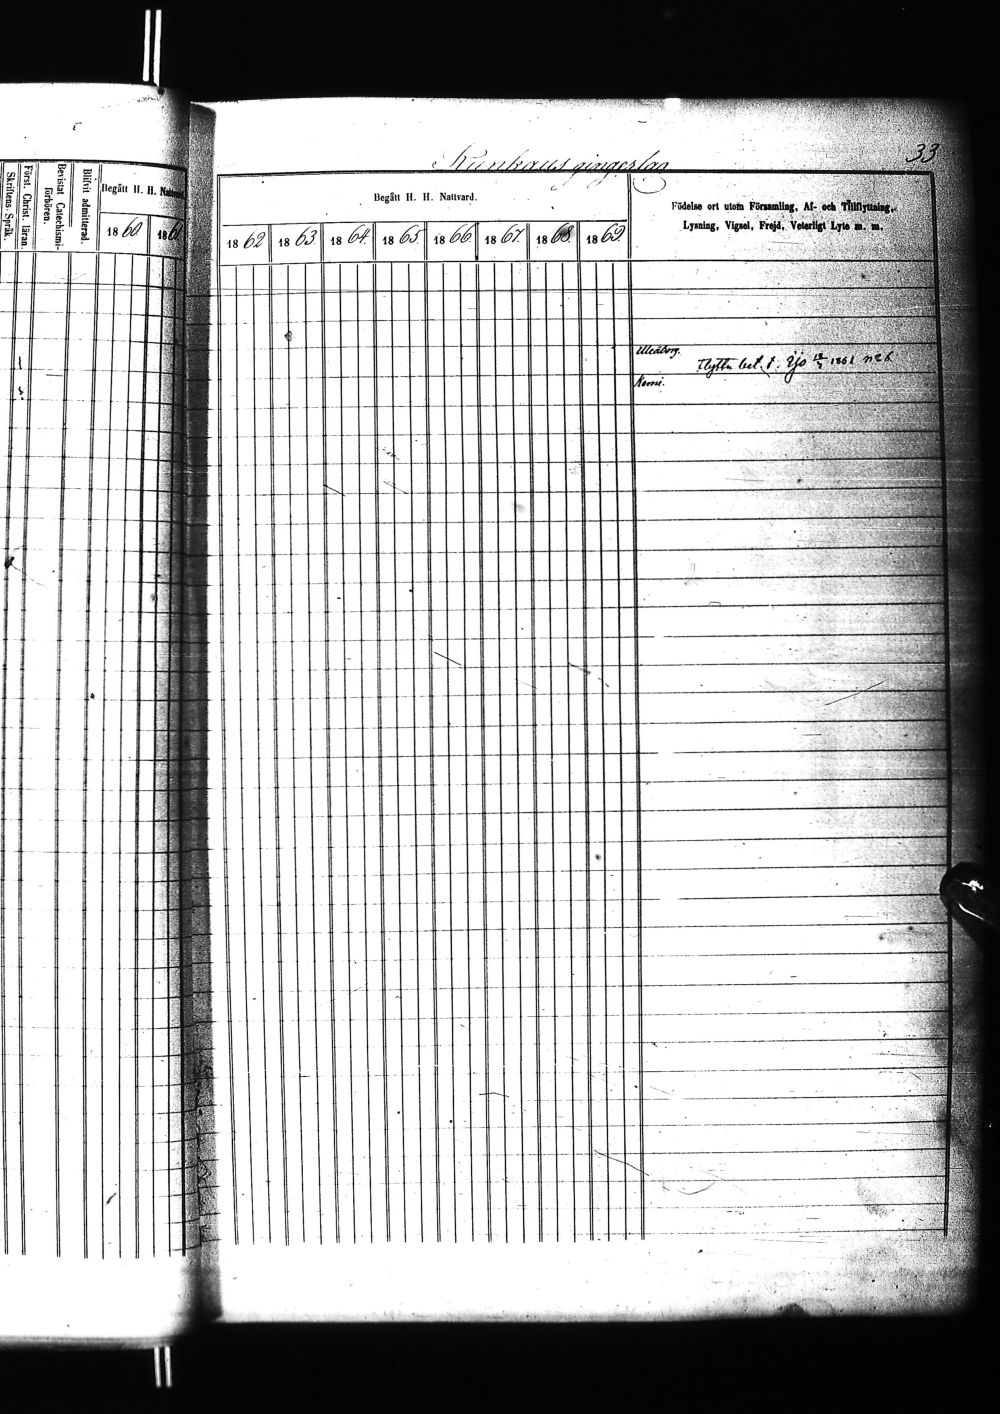 Kunkaus gingerslag
33
Skriftens Språk.
Först. Christ. läran.
Bevistat Catechismi-
förhören.
Blifvit admitterad.
Begått H. H. Nattvard.
1860 1861
Begått H. H. Nattvard.
1862 1863. 1864. 1865. 1866. 1867. 1868. 1869.
Födelse ort utom Församling, Af- och Tillflyttning,
Lysning, Vigsel, Frejd, Veterligt Lyte m. m.
Uleåborg.
Flyttn bet. t. Ijo 1861 n:o 6
Kemi.